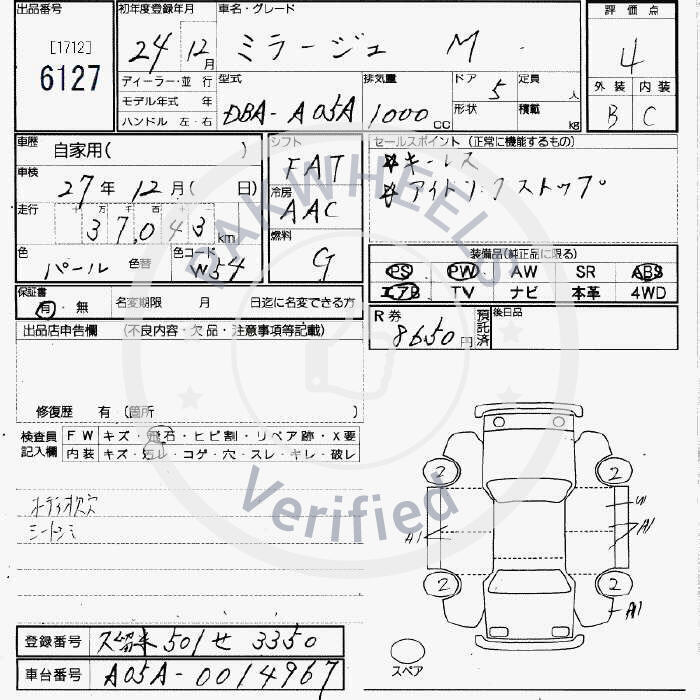 出品番号 初年度登録年月 車名・グレード 評価点
[1712] 24年 12月 ミラージュ M 4
6127
ディーラー・並行 型式 排気量 ドア 定員 外装 内装
モデル年式 年 DBA-A05A 1000CC 5 人 B C
ハンドル 左・右 形状 積載 kg
車歴 自家用( ) シフト FAT セールスポイント (正常に機能するもの)
車検 27年 12月( 日) 冷房 AAC キーレス
走行 十万千百十 37,043km アイドリングストップ
色 パール 色替 色コード W54 燃料 G 装備品(純正品に限る)
PS PW AW SR ABS
エアB TV ナビ 本革 4WD
保証書 有・無 名変期限 月 日迄に名変できる方
R券 8650円 預託済 後日品
出品店申告欄 (不良内容・欠品・注意事項等記載)
修復歴 有(箇所 )
検査員 FW キズ・飛石・ヒビ割・リペア跡・X要
記入欄 内装 キズ・汚レ・コゲ・穴・スレ・キレ・破レ
オーディオ欠穴
シートシミ
2 2
A1 A1
2 2
A1
登録番号 久留米 501 せ 3350
スペア
車台番号 A05A-0014967
PAKWHEELS
Verified